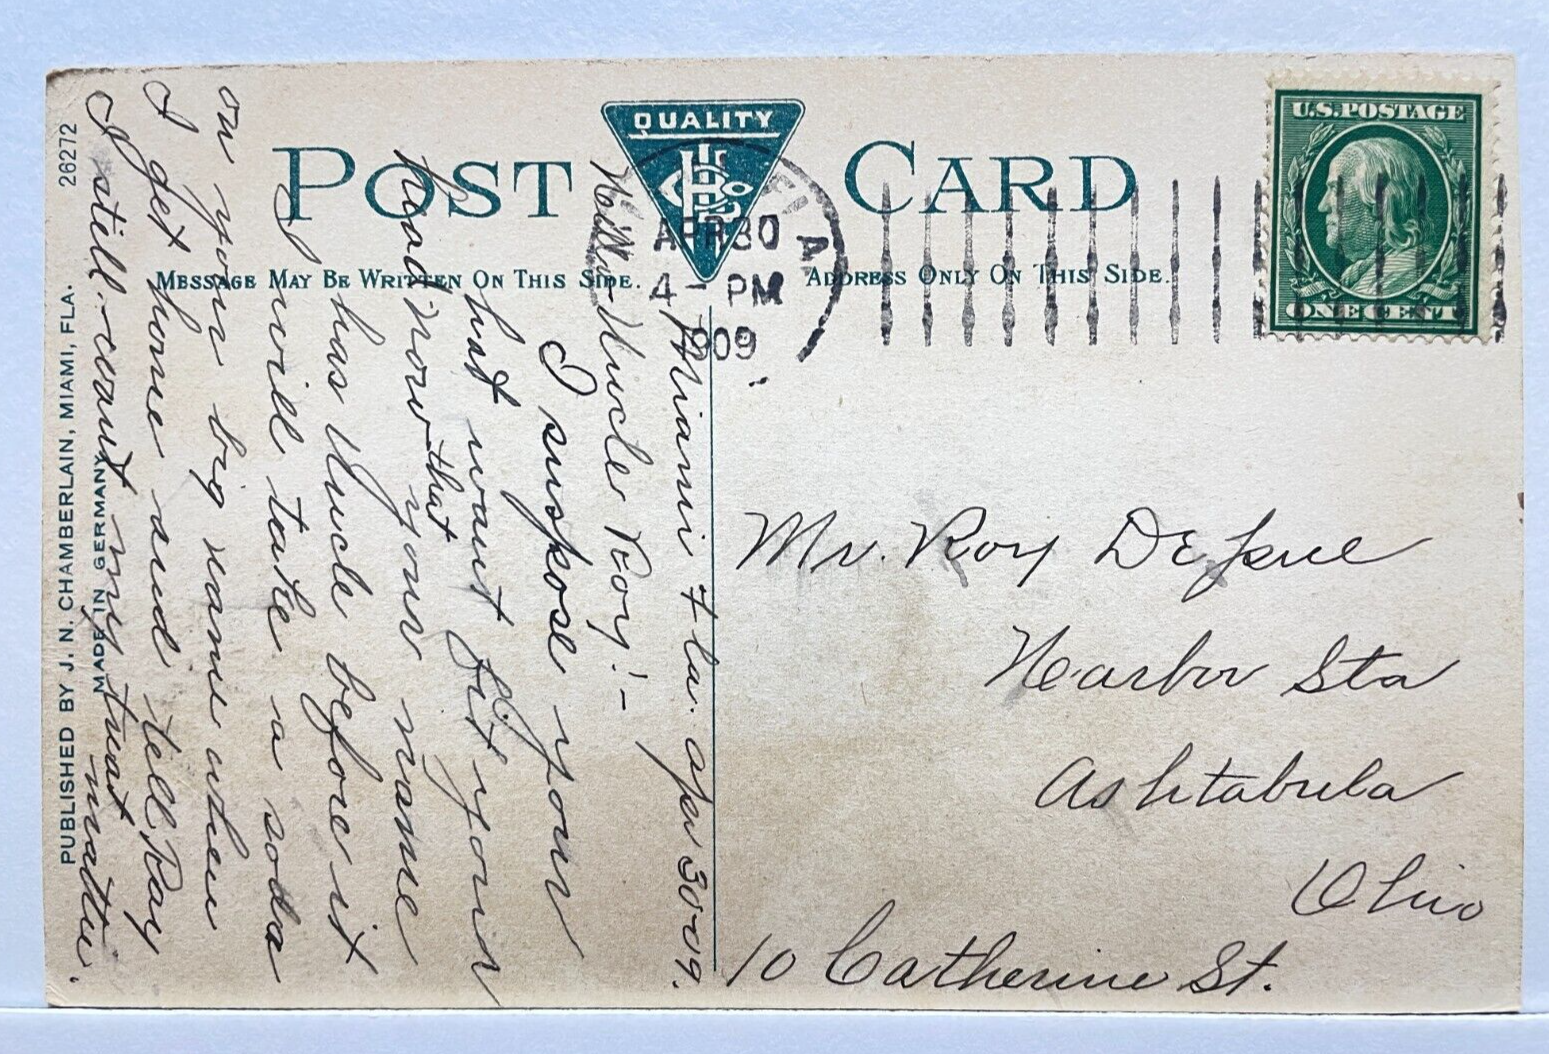 QUALITY
POST CARD
U.S. POSTAGE
ONE CENT
MESSAGE MAY BE WRITTEN ON THIS SIDE.
ADDRESS ONLY ON THIS SIDE.
APR 30
4 - PM
1909
FLA
26272
PUBLISHED BY J. N. CHAMBERLAIN, MIAMI, FLA.
MADE IN GERMANY
Miami Fla. Apr 30-09.
Hello - Uncle Roy! -
I suspose your
hat wount fit your
head now that your name
has Uncle before it
I will take a soda
on your big name when
I get home and tell Ray
I still count my treat mattu.
Mr. Roy
Harbor Sta
Ashtabula
Ohio
10 Catherine St.